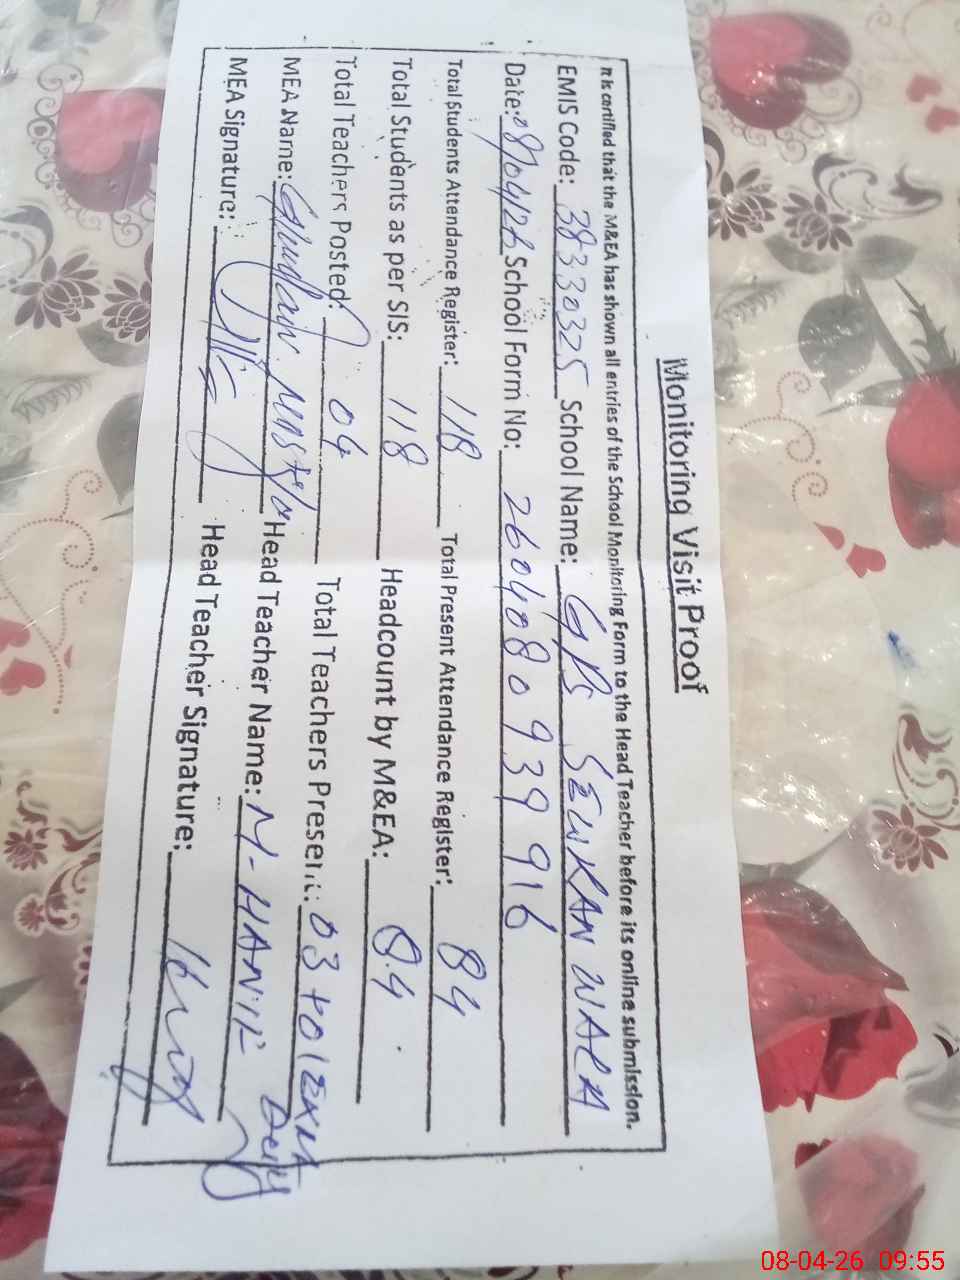 Monitoring Visit Proof
It is certified that the M&EA has shown all entries of the School Monitoring Form to the Head Teacher before its online submission.
EMIS Code: 38330325 School Name: GPS SEWKAN WALA
Date: 08/04/26 School Form No: 26040809399 16
Total Students Attendance Register: 118 Total Present Attendance Register: 84
Total Students as per SIS: 118 Headcount by M&EA: 84
Total Teachers Posted: 04 Total Teachers Present: 03+01 EXAM Duty
MEA Name: Ghulam Head Teacher Name: M-HANIF
MEA Signature: Head Teacher Signature:
08-04-26 09:55